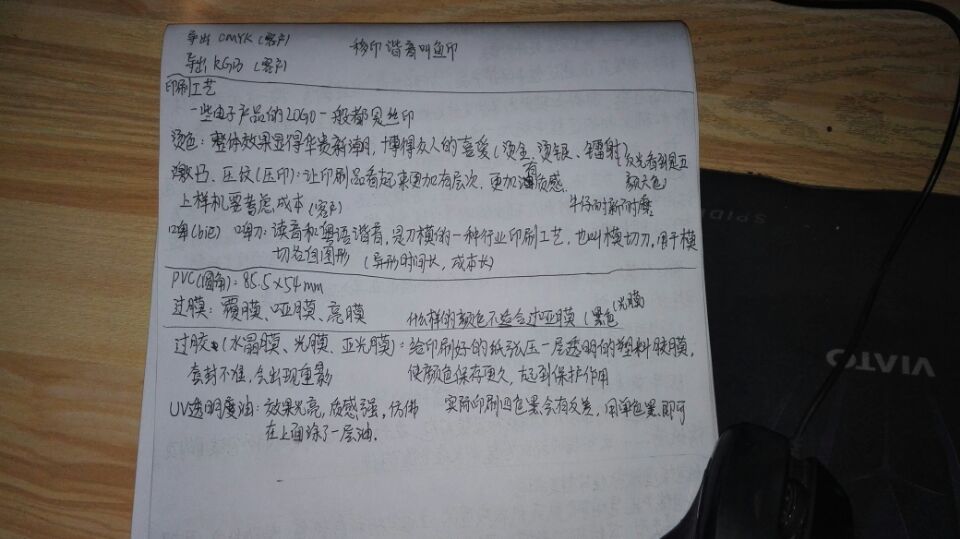 导出 CMYK (客户)
移印 谐音叫鱼印
导出 RGB (客户)
印刷工艺
一些电子产品的LOGO一般都见丝印
烫色：整体效果显得华贵新潮，博得众人的喜爱(烫金、烫银、镭射)
反光看到是五颜六色
激凸、压纹(压印)：让印刷品看起来更加有层次，更加有质感
上样机要考虑成本(客户)
牛仔耐
啤(bie) 啤刀：读音和粤语谐音，是刀模的一种行业印刷工艺，也叫模切刀，用于模
切各自图形 (异形时间长，成本长)
PVC(圆角)：85.5×54mm
过膜：覆膜、哑膜、亮膜
什么样的颜色不适合过哑膜(黑色
光膜
过胶(水晶膜、光膜、亚光膜)：给印刷好的纸张压一层透明的塑料胶膜，
套封不准，会出现重影
使颜色保存更久，起到保护作用
UV透明度油：效果光亮，质感强，仿佛
实际印刷四色黑会有反差，用单色黑即可
在上面涂了一层油.
VIATO
SPID